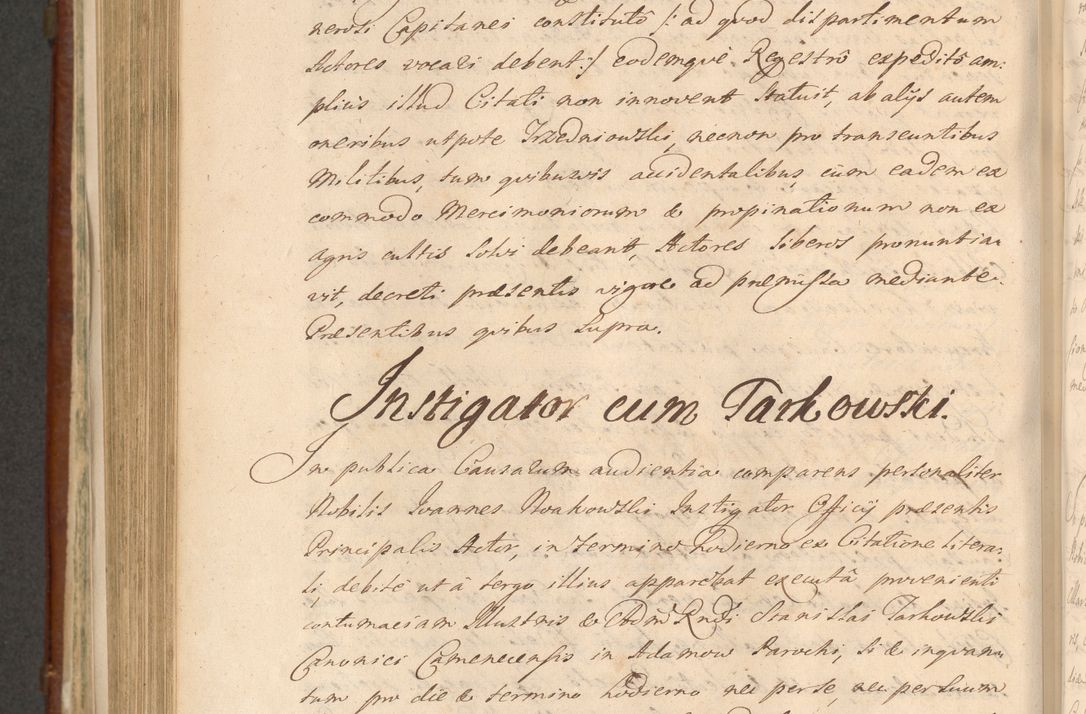 nerosi Capitanei constitutô /: ad quod dispartimentum
Actores vocari debent :/ eodemquè Regestrô expeditô am:
pliùs illud Citati non innovent statuit, ab alijs autem
oneribus utpote Trzedniowski, necnon pro transeuntibus
Militibus, tum quibusvis accidentalibus, cùm eadem ex
commodo Mercimoniorum & propinationum non ex
agris cultis solvi debeant, Actores liberos pronuntia-
vit, decreti præsentis vigore ad præmissa mediante.
Præsentibus quibus supra.
Instigator cum Tarkowski.
In publica Causarum audientia comparens personaliter
Nobilis Ioannes Noakowski Instigator Officij præsentis
Principalis Actor, in termino hodierno ex Citatione litera:
li, debitè ut à tergo illius apparebat executâ provenienti
contumaciam Illustris & Adm̃ Rndi Stanislai Tarkowski
Canonici Camenecensis in Adamow Parochi, si & inquan
tum pro die & termino hodierno nec per se, nec per suum